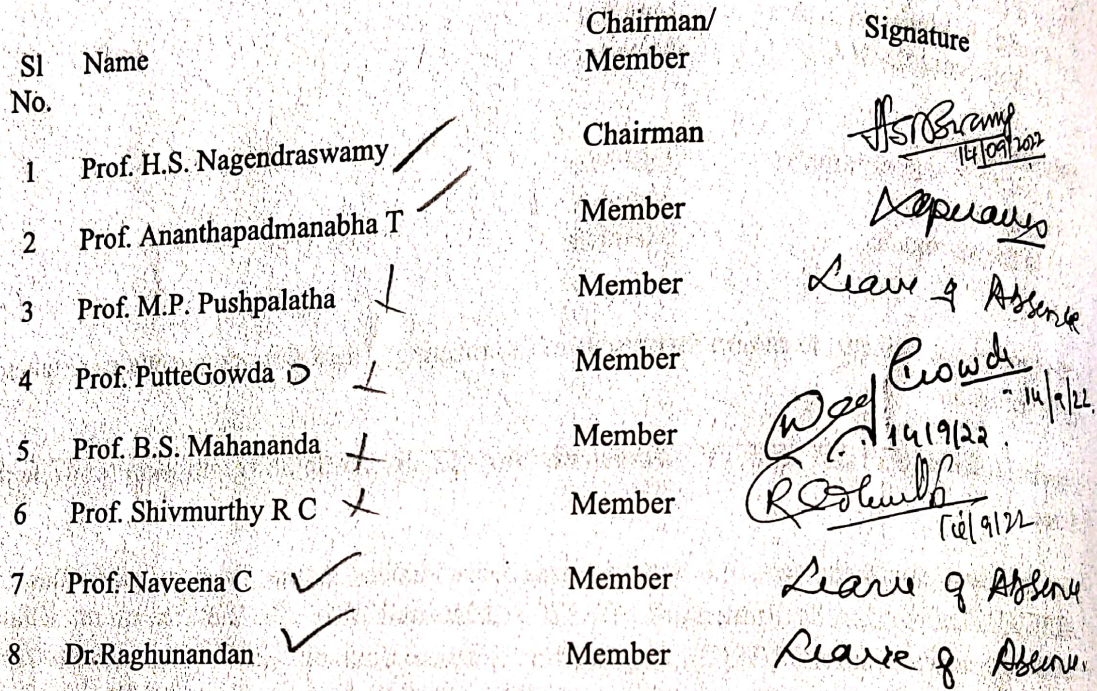 Sl No. Name Chairman/ Member Signature
1 Prof. H.S. Nagendraswamy Chairman 14/09/2022
2 Prof. Ananthapadmanabha T Member
3 Prof. M.P. Pushpalatha Member Leave of Absence
4 Prof. PutteGowda D Member Gowda 14/9/22
5 Prof. B.S. Mahananda Member 14/9/22.
6 Prof. Shivmurthy R C Member 14/9/22
7 Prof. Naveena C Member Leave of Absence
8 Dr.Raghunandan Member Leave of Absence.